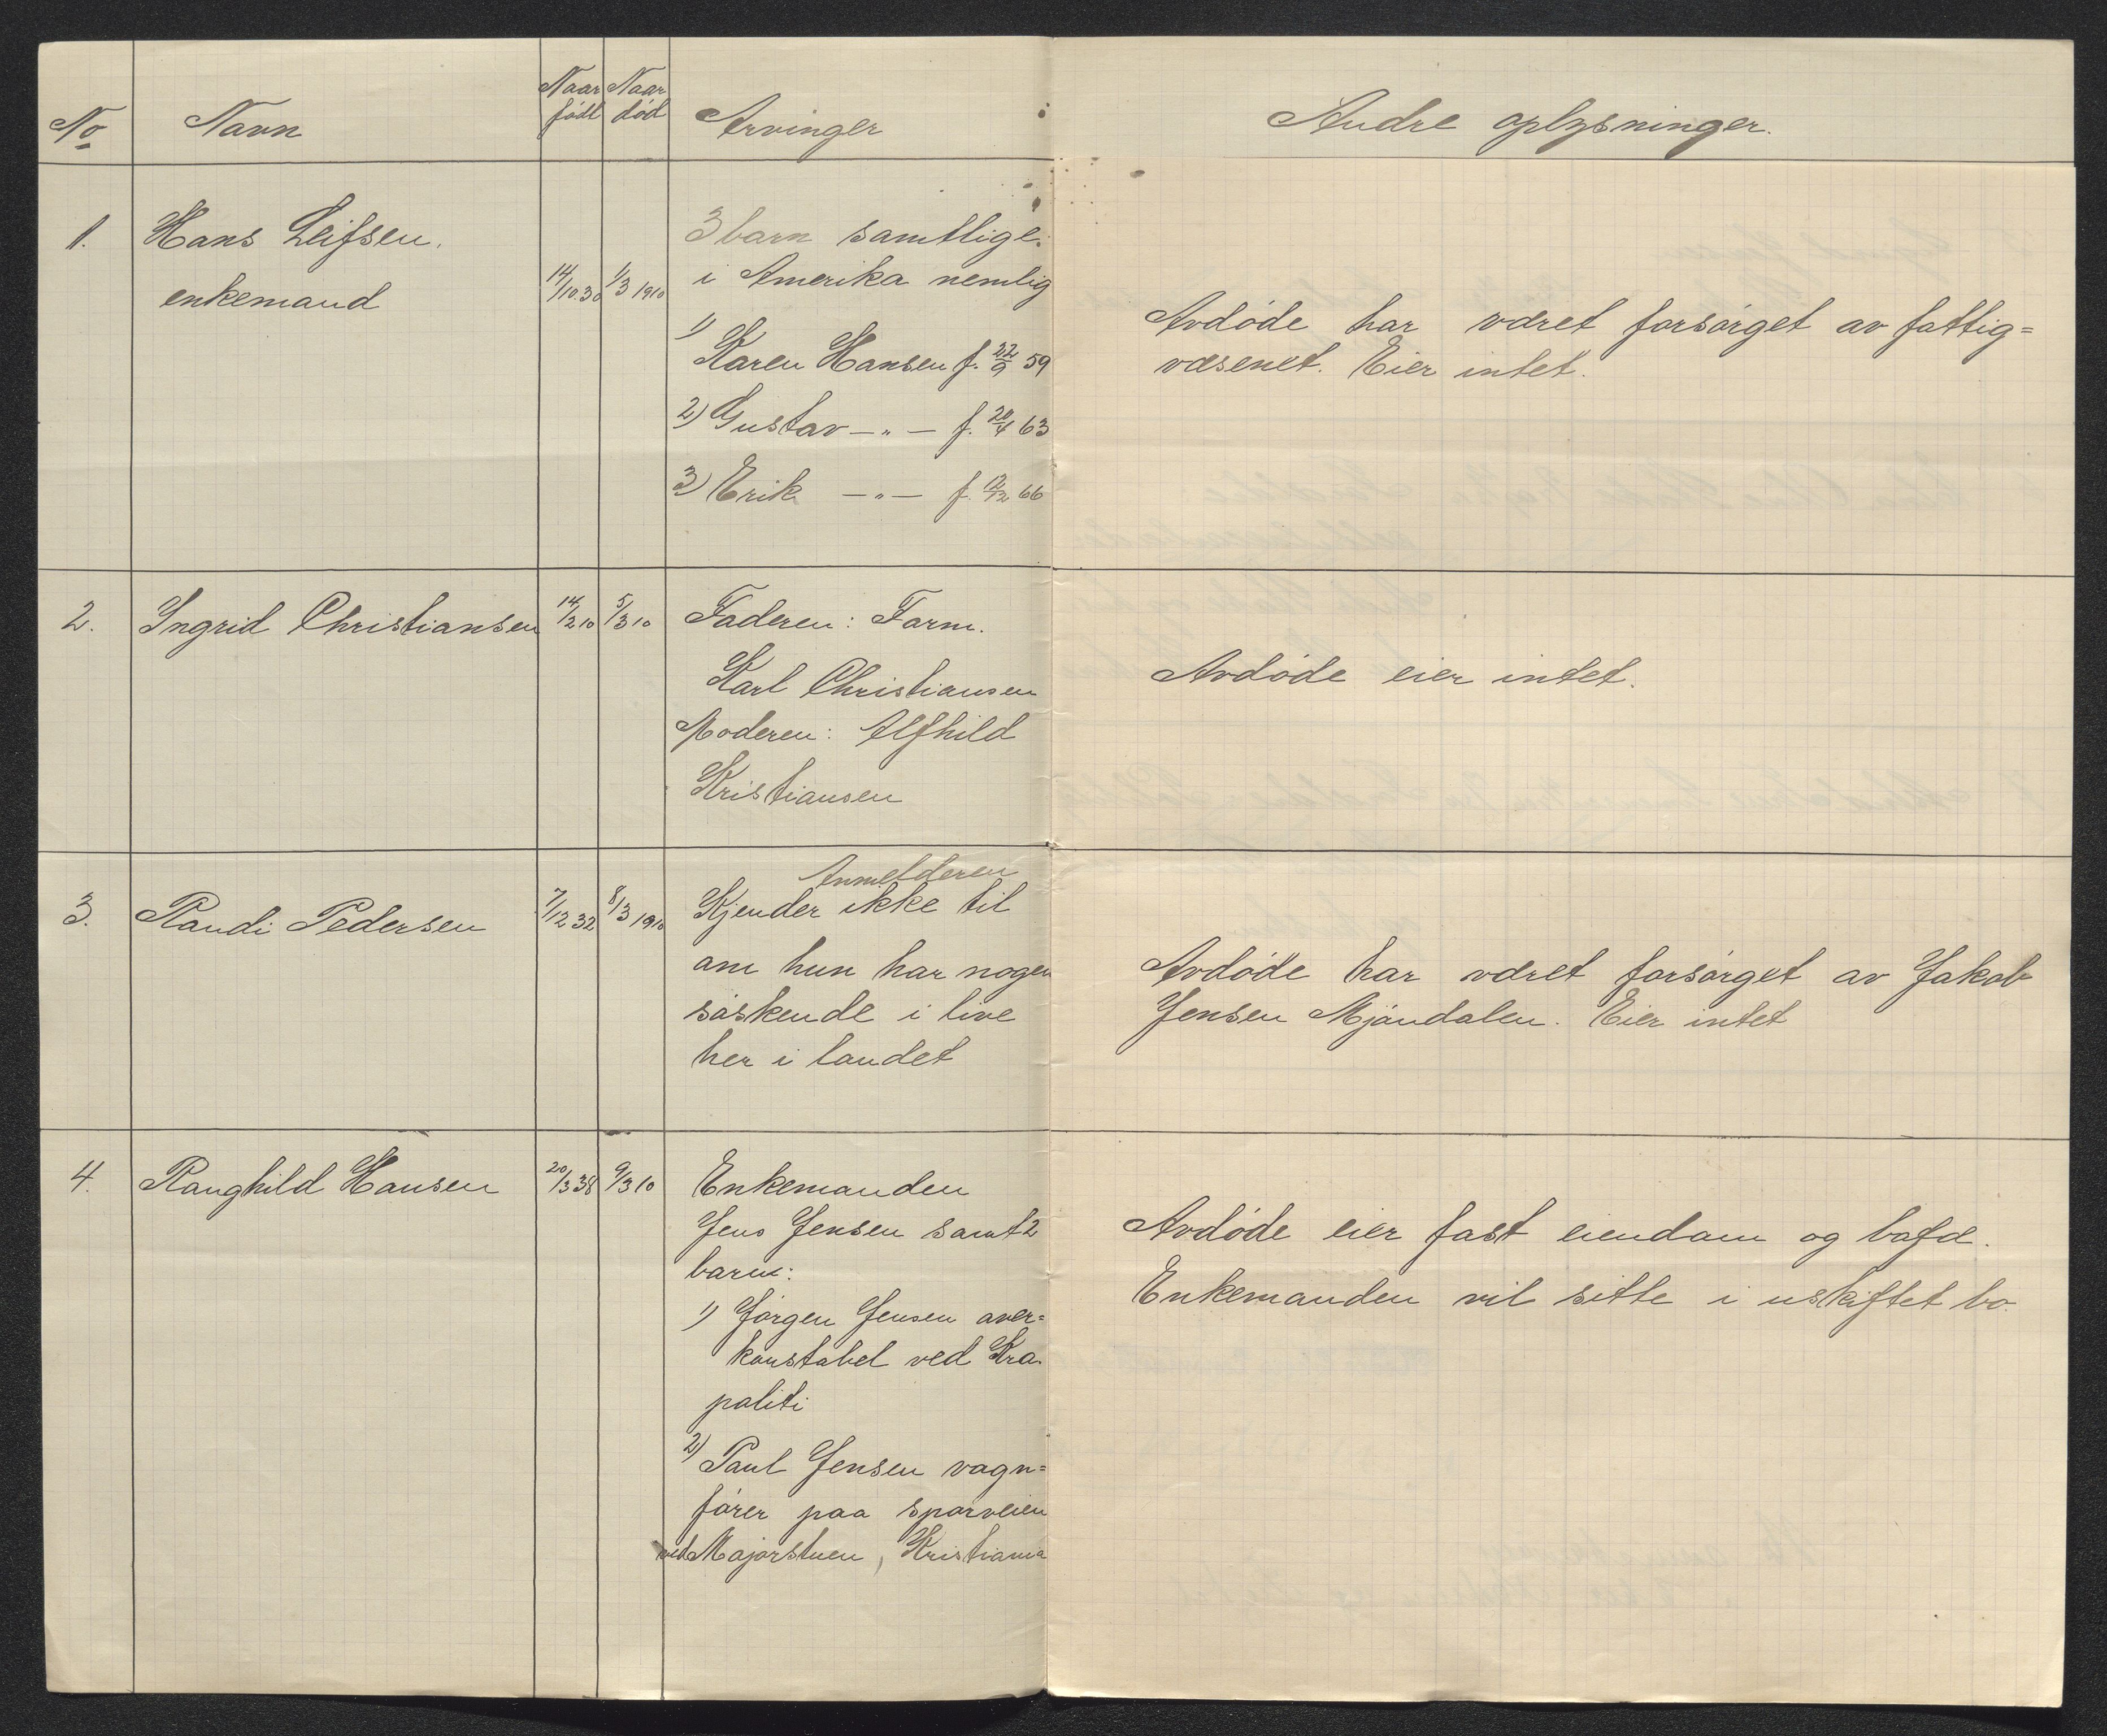 No Navn Naar født Naar død Arvinger Andre oplysninger.
1. Hans Leifsen. enkemand 14/10 30 1/3 1910
3 barn samtlige
i Amerika nemlig
1) Karen Hansen f. 22/9 59
2) Gustav —„— f. 20/4 63
3) Erik —„— f. 12/12 66
Avdøde har været forsørget av fattig=
væsenet. Eier intet.
2. Ingrid Christiansen 14/2 10 5/3 10
Faderen: Form.
Karl Christiansen
Moderen: Alfhild
Kristiansen
Avdøde eier intet.
3. Randi Pedersen 7/12 32 8/3 1910
Anmelderen
Kjender ikke til
om hun har nogen
søskende i live
her i landet
Avdøde har været forsørget av Jakob
Jensen Mjøndalen. Eier intet
4. Ranghild Hansen 20/3 38 9/3 10
Enkemanden
Jens Jensen samt 2
barn:
1) Jørgen Jensen over=
konstabel ved Kra.
politi
2) Paul Jensen vogn=
fører paa sporveien
ved Majorstuen, Kristiania
Avdøde eier fast eiendom og bofæ.
Enkemanden vil sitte i uskiftet bo.